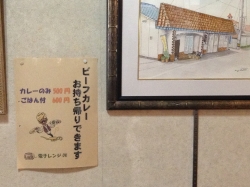 ビーフカレー
お持ち帰りできます
カレーのみ 500円
ごはん付 600円
電子レンジOK